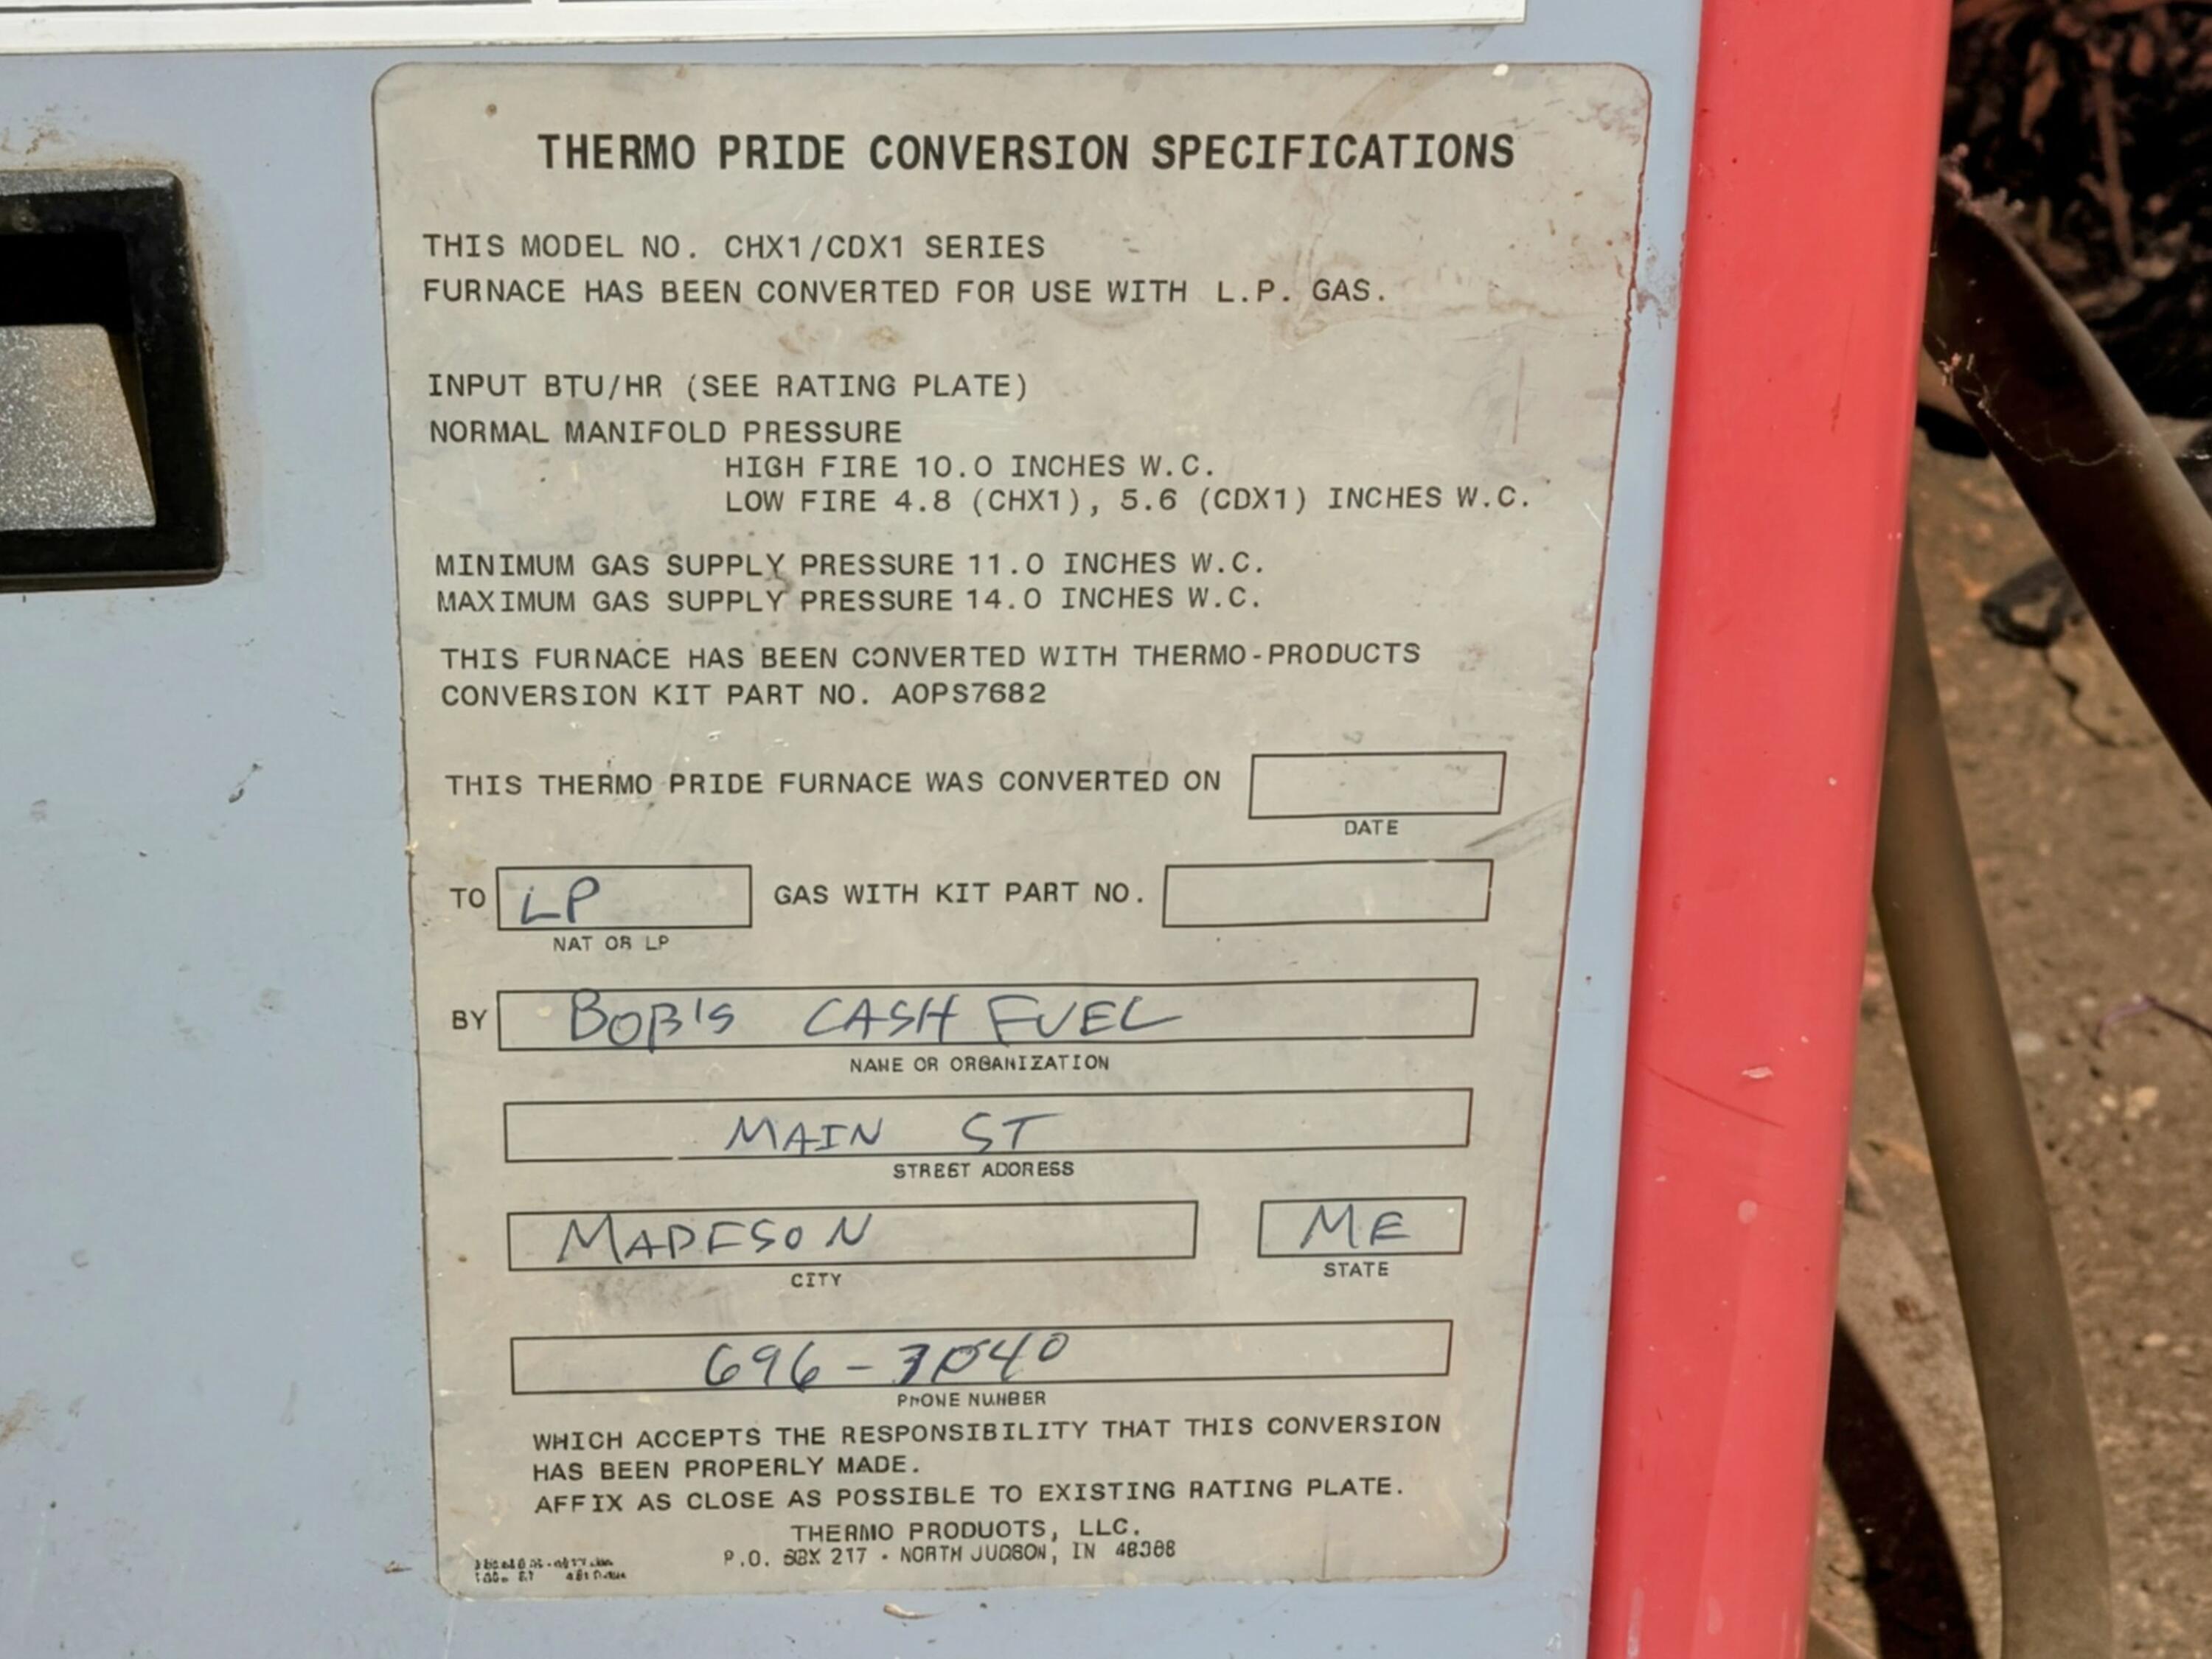 THERMO PRIDE CONVERSION SPECIFICATIONS
THIS MODEL NO. CHX1/CDX1 SERIES
FURNACE HAS BEEN CONVERTED FOR USE WITH L.P. GAS.
INPUT BTU/HR (SEE RATING PLATE)
NORMAL MANIFOLD PRESSURE
HIGH FIRE 10.0 INCHES W.C.
LOW FIRE 4.8 (CHX1), 5.6 (CDX1) INCHES W.C.
MINIMUM GAS SUPPLY PRESSURE 11.0 INCHES W.C.
MAXIMUM GAS SUPPLY PRESSURE 14.0 INCHES W.C.
THIS FURNACE HAS BEEN CONVERTED WITH THERMO-PRODUCTS
CONVERSION KIT PART NO. AOPS7682
THIS THERMO PRIDE FURNACE WAS CONVERTED ON
DATE
TO LP GAS WITH KIT PART NO.
NAT OR LP
BY BOB'S CASH FUEL
NAME OR ORGANIZATION
MAIN ST
STREET ADDRESS
MADISON ME
CITY STATE
696-3040
PHONE NUMBER
WHICH ACCEPTS THE RESPONSIBILITY THAT THIS CONVERSION
HAS BEEN PROPERLY MADE.
AFFIX AS CLOSE AS POSSIBLE TO EXISTING RATING PLATE.
THERMO PRODUCTS, LLC.
P.O. BOX 217 - NORTH JUDSON, IN